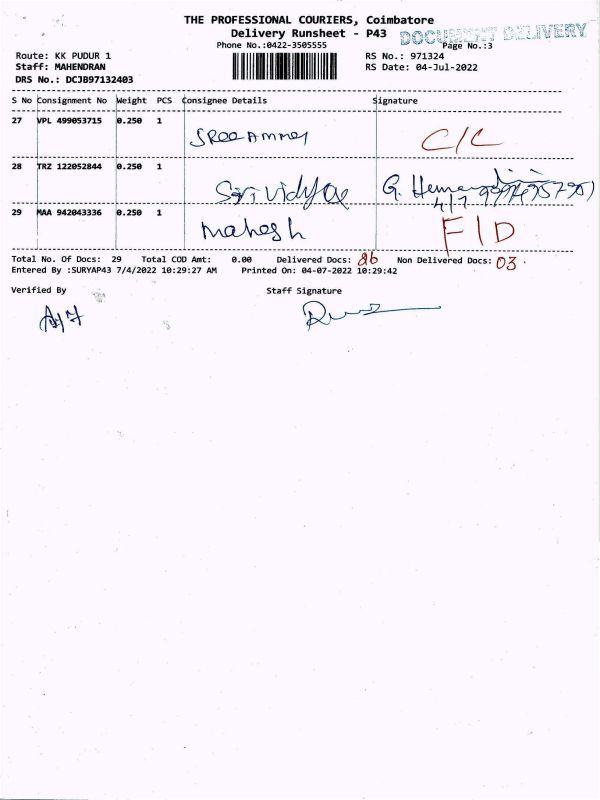 THE PROFESSIONAL COURIERS, Coimbatore
Delivery Runsheet - P43
DOCUMENT DELIVERY
Phone No.:0422-3505555
Page No.:3
Route: KK PUDUR 1
RS No.: 971324
Staff: MAHENDRAN
RS Date: 04-Jul-2022
DRS No.: DCJB97132403
S No Consignment No Weight PCS Consignee Details Signature
27 VPL 499053715 0.250 1
C/C
28 TRZ 122052844 0.250 1
Sri vidya G.
4/7
29 MAA 942043336 0.250 1
Mahesh F/D
Total No. Of Docs: 29 Total COD Amt: 0.00 Delivered Docs: 26 Non Delivered Docs: 03.
Entered By :SURYAP43 7/4/2022 10:29:27 AM Printed On: 04-07-2022 10:29:42
Verified By Staff Signature